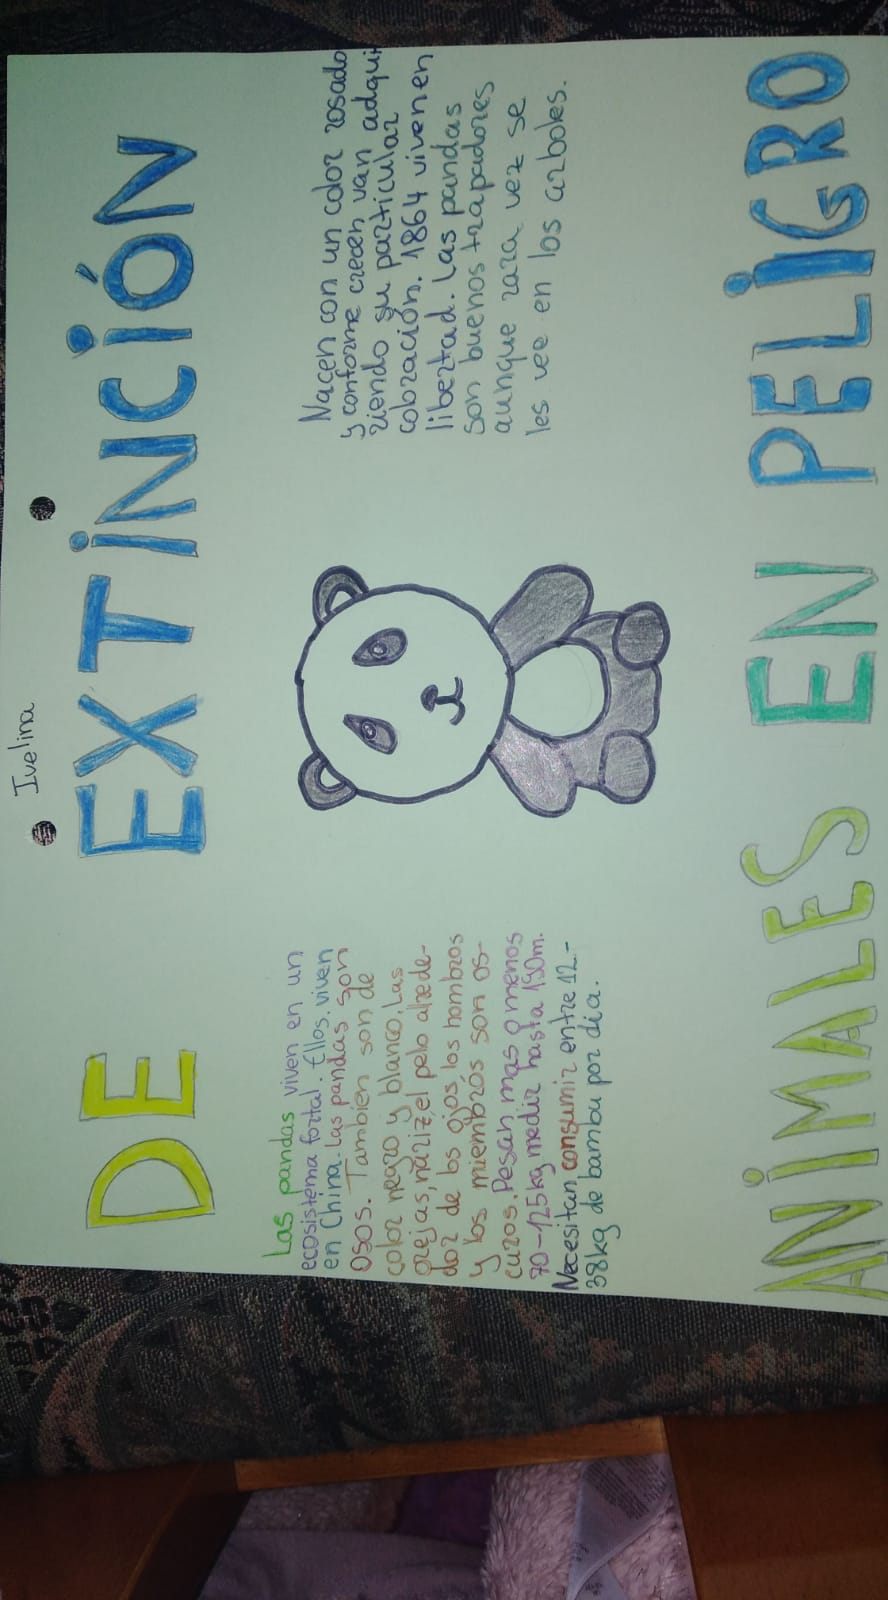 Ivelina
DE EXTINCIÓN
Las pandas viven en un
ecosistema fortal. Ellos viven
en China. las pandas son
osos. Tambien son de
color negro y blanco, Las
orejas, nariz, el pelo alrede-
dor de los ojos los hombros
y los miembros son os-
curos. Pesan mas o menos
70-125kg medir hasta 190m.
Necesitan consumir entre 12-
38kg de bambu por dia.
Nacen con un color rosado
y conforme crecen van adqui
riendo su particular
coloración. 1864 viven en
libertad. Las pandas
son buenos trapadores
aunque rara vez se
les vee en los arboles.
ANIMALES EN PELIGRO